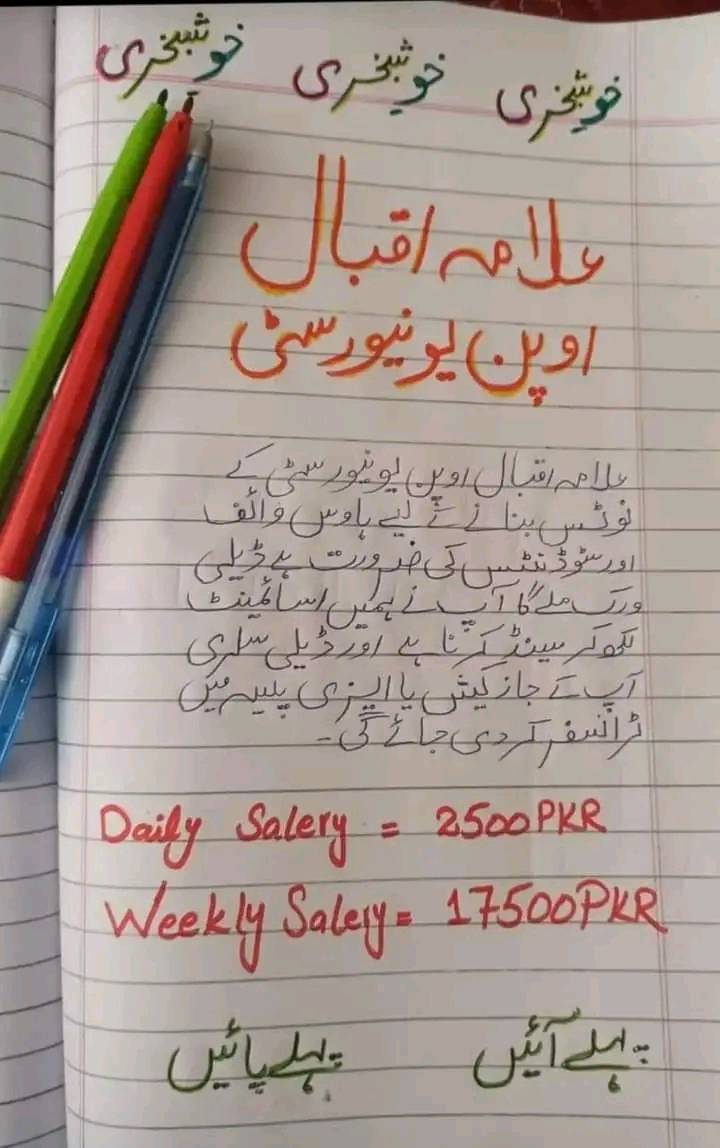 خوشبخری خوشبخری خوشبخری
علامہ اقبال
اوپن یونیورسٹی
علامہ اقبال اوپن یونیورسٹی کے
نوٹس بنانے کے لیے ہاوس وائف
اور سٹوڈنٹس کی ضرورت ہے ڈیلی
ورک ملے گا آپ نے ہمیں اسائمینٹ
لکھ کر سینڈ کرنا ہے اور ڈیلی سلری
آپ کے جاز کیش یا ایزی پیسہ میں
ٹرانسفر کر دی جائے گی۔
Daily Salery = 2500PKR
Weekly Salery = 17500PKR
پہلے آئیں پہلے پائیں